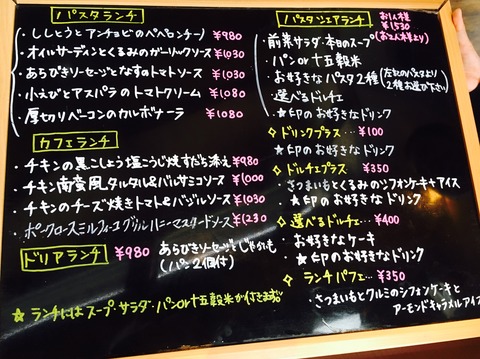 パスタランチ
・ししとうとアンチョビのペペロンチーノ ¥980
・オイルサーディンとくるみのガーリックソース ¥1,030
・あらびきソーセージとなすのトマトソース ¥1,030
・小えびとアスパラのトマトクリーム ¥1,080
・厚切りベーコンのカルボナーラ ¥1,080
カフェランチ
・チキンの黒こしょう塩こうじ焼すだち添え ¥980
・チキン南蛮風タルタル&バルサミコソース ¥1,000
・チキンのチーズ焼きトマト&バジルソース ¥1,030
・ポークロースミルフィーユグリルハニーマスタードソース ¥1,230
ドリアランチ ¥980 あらびきソーセージとじゃがいも
(パン2個付)
☆ランチにはスープ・サラダ・パンor十五穀米が付きます
パスタシェアランチ お1人様 ¥1,530
(お2人様より)
・前菜サラダ・本日のスープ
・パンor十五穀米
・お好きなパスタ2種(左記のパスタより2種お選び下さい)
・選べるドルチェ
・★印のお好きなドリンク
◇ドリンクプラス…¥100
★印のお好きなドリンク
◇ドルチェプラス…¥350
・さつまいもとくるみのシフォンケーキ+アイス
★印のお好きなドリンク
◇選べるドルチェ…¥400
・お好きなケーキ
・★印のお好きなドリンク
◇ランチパフェ…¥350
・さつまいもとクルミのシフォンケーキと
アーモンドキャラメルアイス